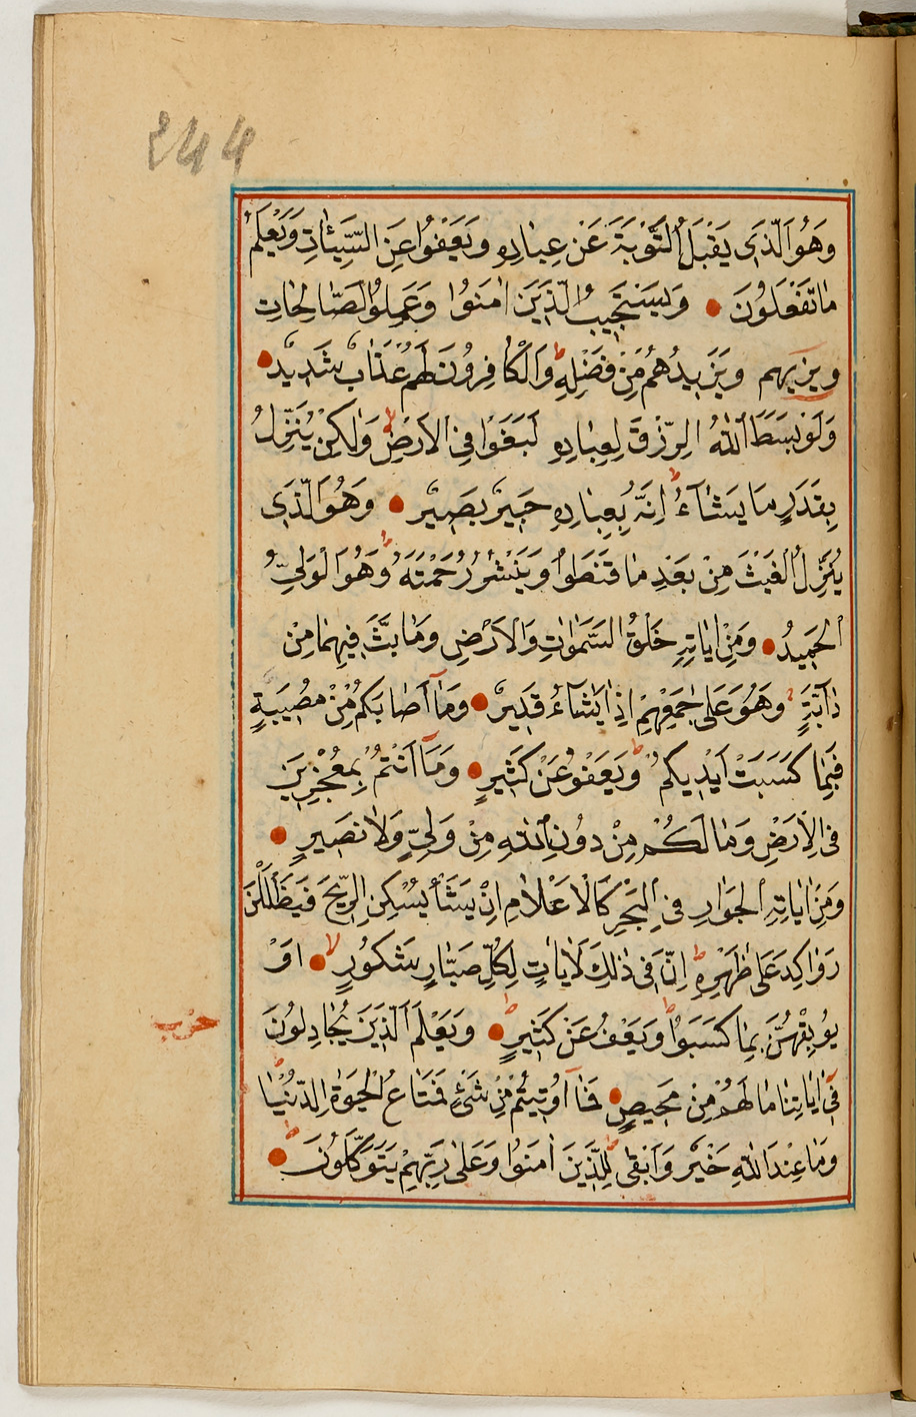 ٢٤٤
وَهُوَ الَّذٖى يَقْبَلُ التَّوْبَةَ عَنْ عِبَادِهٖ وَيَعْفُوا عَنِ السَّيِّئَاتِ وَيَعْلَمُ
مَا تَفْعَلُونَ وَيَسْتَجٖيبُ الَّذٖينَ اٰمَنُوا وَعَمِلُوا الصَّالِحَاتِ
ويزيدهم وَيَزٖيدُهُمْ مِنْ فَضْلِهٖ ط وَالْكَافِرُونَ لَهُمْ عَذَابٌ شَدٖيدٌ
وَلَوْ بَسَطَ اللّٰهُ الرِّزْقَ لِعِبَادِهٖ لَبَغَوْا فِى الْاَرْضِ وَلٰكِنْ يُنَزِّلُ
بِقَدَرٍ مَا يَشَاۤءُ ط اِنَّهُ بِعِبَادِهٖ خَبٖيرٌ بَصٖيرٌ وَهُوَ الَّذٖى
يُنَزِّلُ الْغَيْثَ مِنْ بَعْدِ مَا قَنَطُوا وَيَنْشُرُ رَحْمَتَهُ ط وَهُوَ الْوَلِىُّ
الْحَمٖيدُ وَمِنْ اٰيَاتِهٖ خَلْقُ السَّمٰوَاتِ وَالْاَرْضِ وَمَا بَثَّ فٖيهِمَا مِنْ
دَاۤبَّةٍ وَهُوَ عَلٰى جَمْعِهِمْ اِذَا يَشَاۤءُ قَدٖيرٌ وَمَاۤ اَصَابَكُمْ مِنْ مُصٖيبَةٍ
فَبِمَا كَسَبَتْ اَيْدٖيكُمْ وَيَعْفُو عَنْ كَثٖيرٍ ط وَمَاۤ اَنْتُمْ بِمُعْجِزٖينَ
فِى الْاَرْضِ وَمَا لَكُمْ مِنْ دُونِ اللّٰهِ مِنْ وَلِىٍّ وَلَا نَصٖيرٍ
وَمِنْ اٰيَاتِهِ الْجَوَارِ فِى الْبَحْرِ كَالْاَعْلَامِ اِنْ يَشَأْ يُسْكِنِ الرّٖيحَ فَيَظْلَلْنَ
رَوَاكِدَ عَلٰى ظَهْرِهٖ ط اِنَّ فٖى ذٰلِكَ لَاٰيَاتٍ لِكُلِّ صَبَّارٍ شَكُورٍ لا اَوْ
يُوبِقْهُنَّ بِمَا كَسَبُوا وَيَعْفُ عَنْ كَثٖيرٍ ط وَيَعْلَمَ الَّذٖينَ يُجَادِلُونَ
حزب
فٖۤى اٰيَاتِنَا مَا لَهُمْ مِنْ مَحٖيصٍ فَمَاۤ اُوتٖيتُمْ مِنْ شَىْءٍ فَمَتَاعُ الْحَيٰوةِ الدُّنْيَا ط
وَمَا عِنْدَ اللّٰهِ خَيْرٌ وَاَبْقٰى لِلَّذٖينَ اٰمَنُوا وَعَلٰى رَبِّهِمْ يَتَوَكَّلُونَ ط